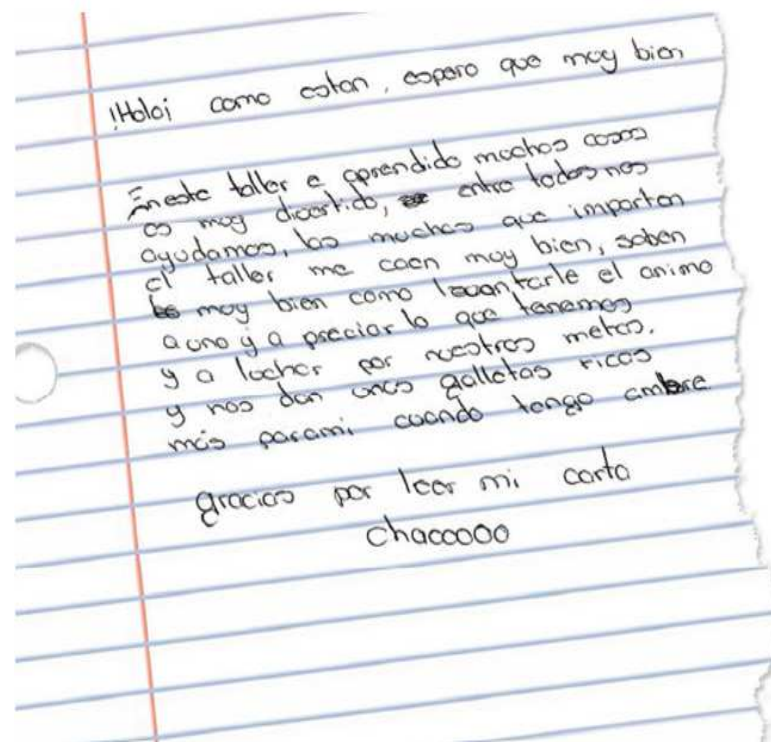 ¡Hola¡ como estan, espero que muy bien
En este taller e aprendido muchas cosas
es muy divertido, entre todos nos
ayudamos, las muchas que imparten
el taller me caen muy bien, saben
muy bien como levantarle el animo
a uno y a preciar lo que tenemos
y a luchar por nuestras metas.
y nos dan unas galletas ricas
más para mi cuando tengo ambre
gracias por leer mi carta
chaooooo